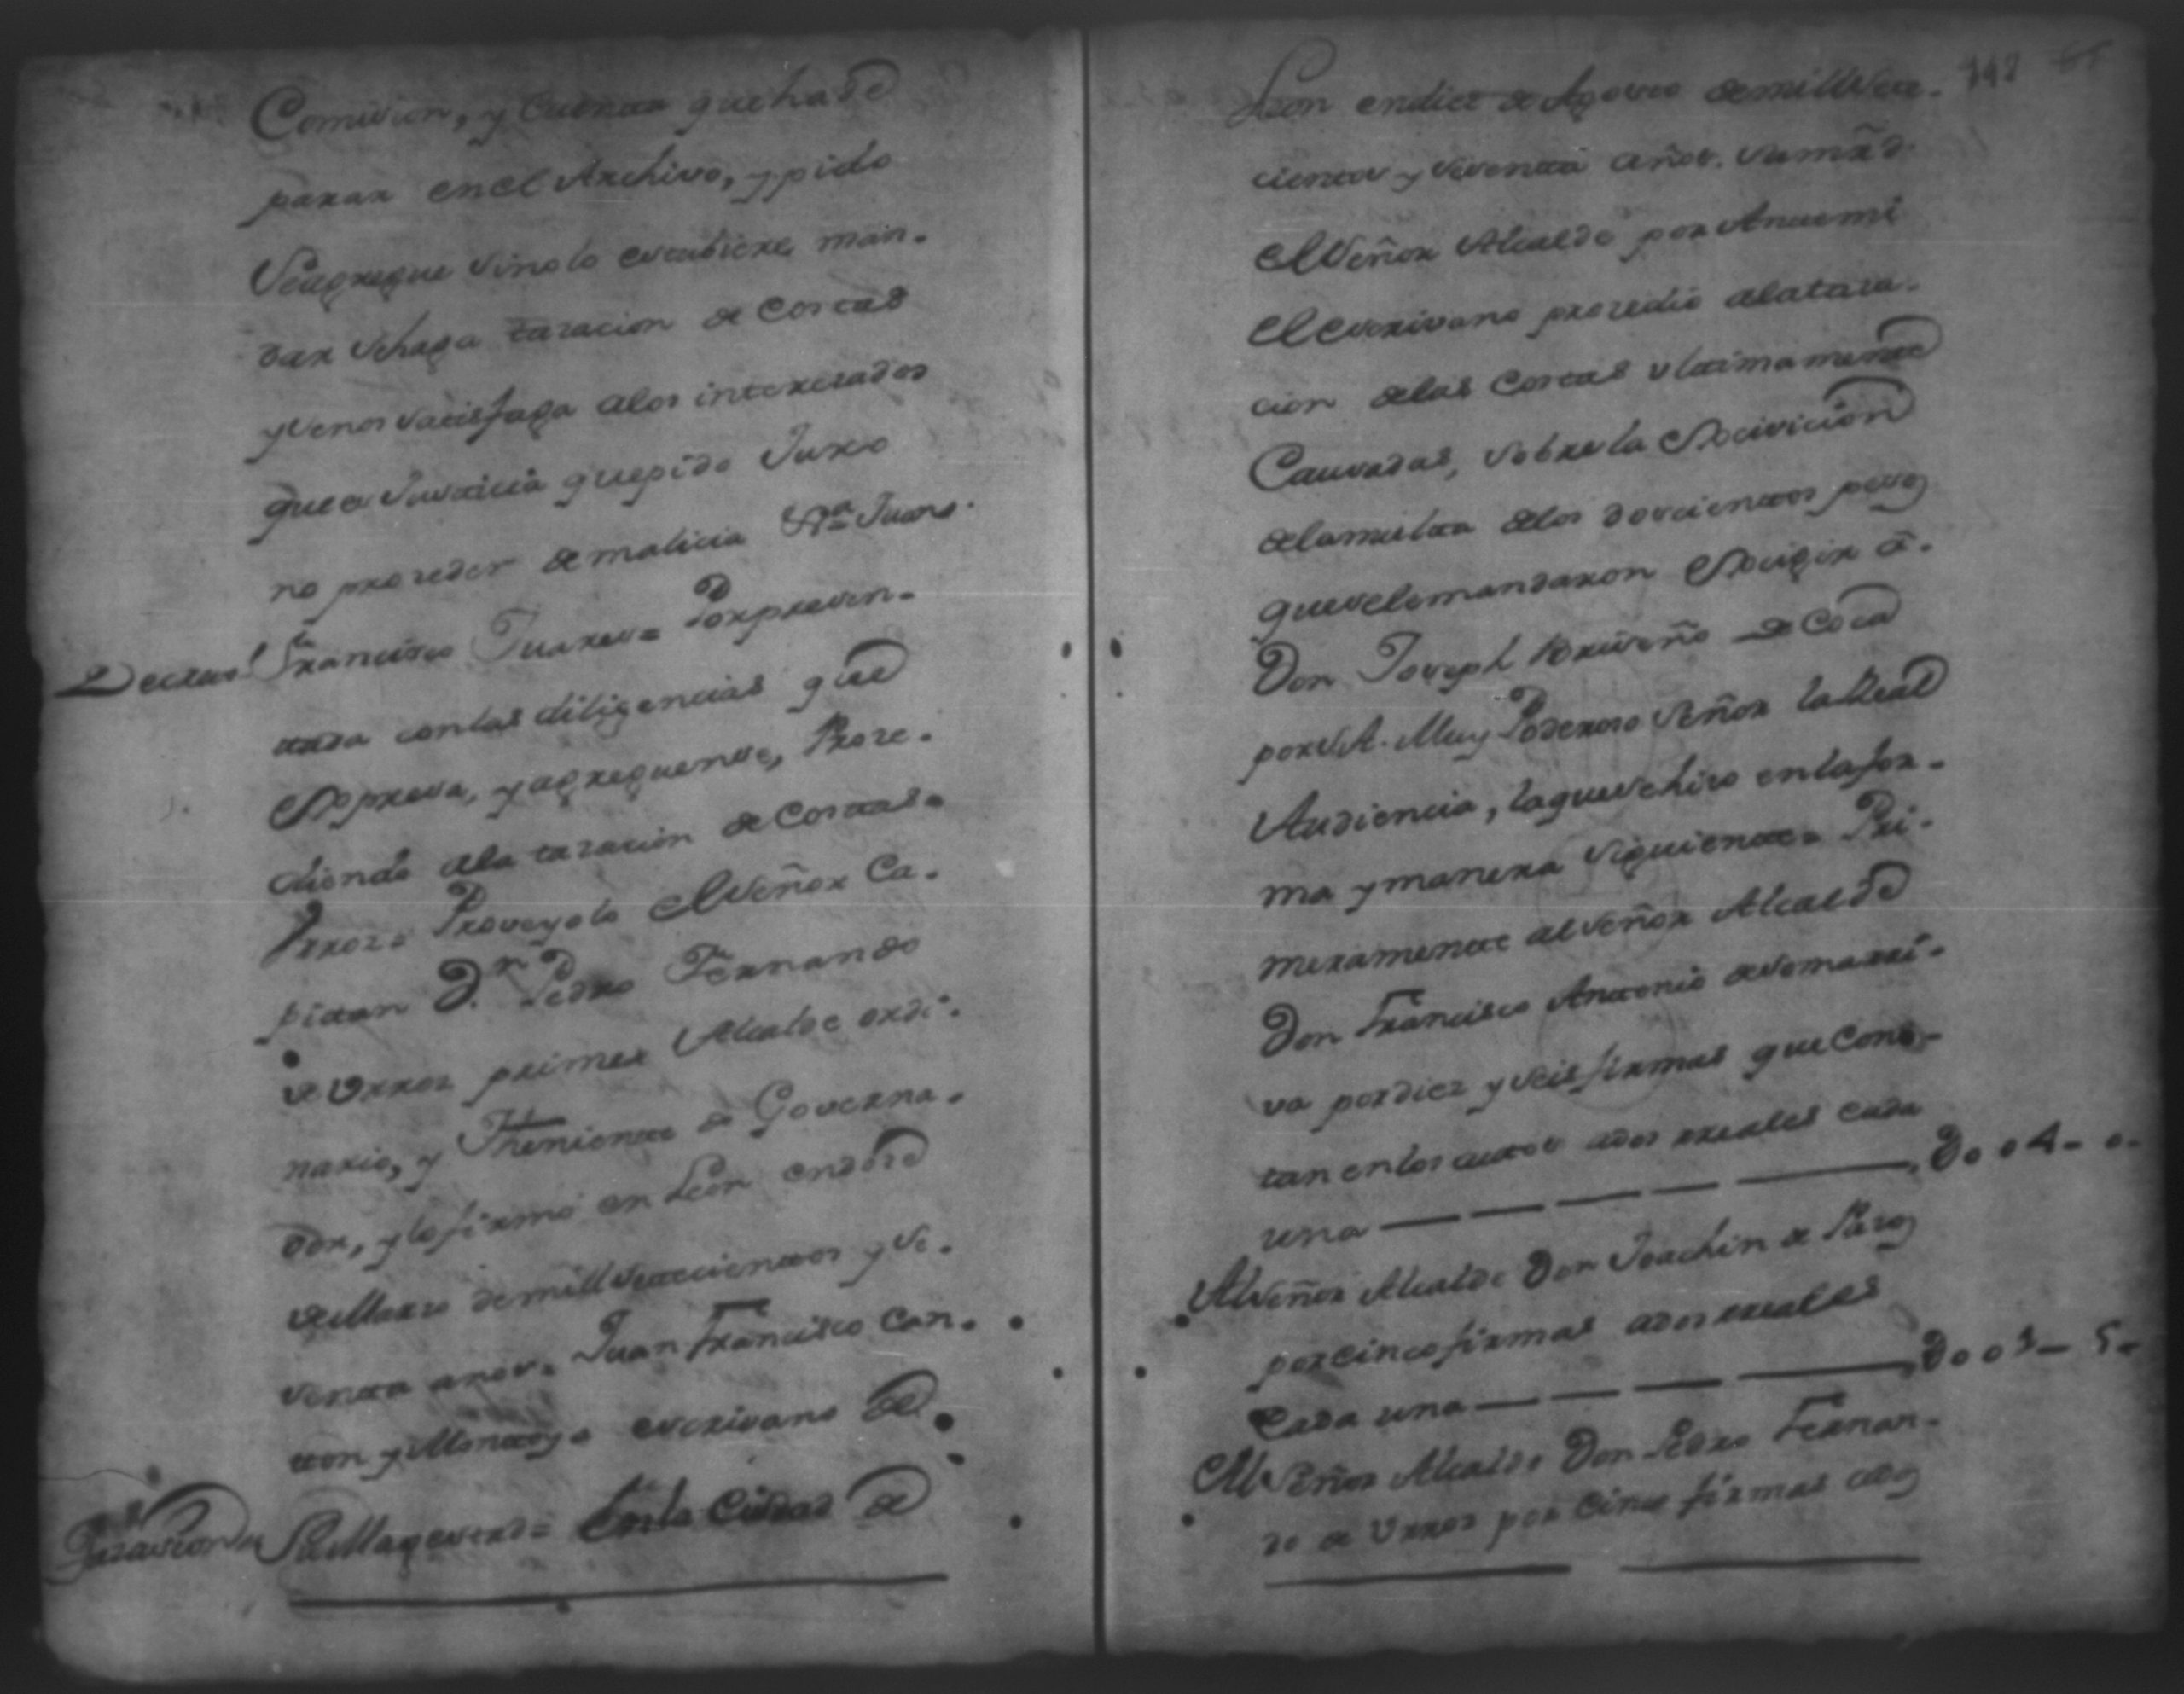 Comision, y Cuenta que ha de
parar en el Archivo, y pido
Se agregue si no lo estubiere, man-
dar se haga tazacion de Costas
y se nos satisfaga a los interezados
que es Justicia que pido Juro
no proceder de malicia Vª Juana
Decreto Francisca Juares = Por presen-
tada con las diligencias que
Expresa, y agreguense, Proce-
diendo a la tazacion de Costas =
Urroz = Proveyolo el Señor Ca-
pitan D.n Pedro Fernando
de Urroz primer Alcalde ordi-
nario, y Theniente de Governa-
dor, y lo firmo en Leon en doze
de Marzo de mill setecientos y se-
senta años = Juan Francisco Can-
ton y Montoya escrivano de
Tazacion Su Magestad = En la Ciudad de
Leon en diez de Agosto de mill sete- 112
cientos y sesenta años. Su md
el Señor Alcalde por Ante mi
el escrivano procedio a la taza-
cion de las Costas ultimamente
Causadas, sobre la Exivicion
de la multa de los doscientos pesos
que se le mandaron Exigir a
Don Joseph Briseño de Coca
por S.A. Muy Poderoso Señor la Real
Audiencia, la que se hizo en la for-
ma y manera siguiente = Pri-
meramente al señor Alcalde
Don Francisco Antonio de Somarri-
va por diez y seis firmas que Cons-
tan en los autos a dos rreales cada
una — — — — D004-0-
Al Señor Alcalde Don Joachin de Pazos
por cinco firmas a dos rreales
Cada una — — — — D003-5-
Al Señor Alcalde Don Pedro Fernan-
do de Urroz por Cinco firmas a dos